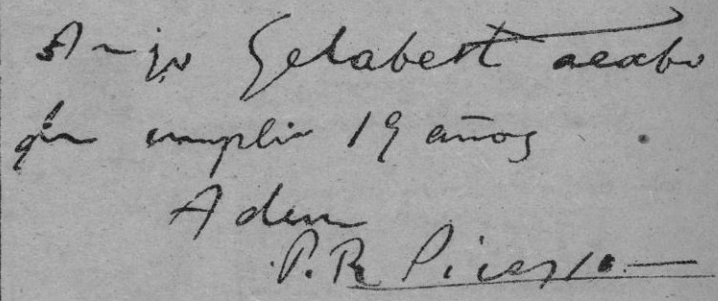 Amigo Gelabert acabo
de cumplir 19 años
Adeu
P. R. Picasso